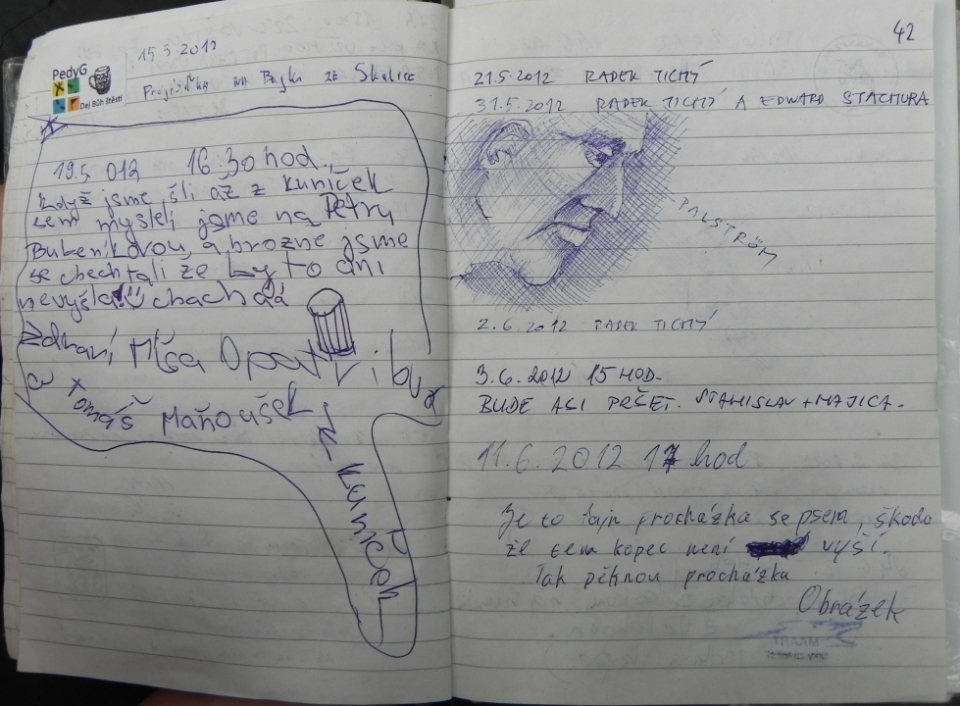 15 5 2012
PedyG
Dej Bůh štěstí
Projížďka na Bejku ze Skalice
19.5 012 16:30 hod.,
když jsme šli až z kuníček
sem mysleli jsme na Petru
Bubeníkovou, a hrozně jsme
se chechtali že by to ani
nevyšla!! chachaá
Zdraví Míša Opatřilová
a Tomáš Maňoušek
z kuníček
42
21.5.2012 RADEK TICHÝ
31.5.2012 RADEK TICHÝ A EDWARD STACHURA
PALSTRÖM
2.6.2012 RADEK TICHÝ
3.6.2012 15 HOD.
BUDE ASI PRŠET. STANISLAV + MAJICA.
11.6.2012 17 hod
Je to fajn procházka se psem, škoda
že sem kopec není vyší.
Tak pěknou procházku
Obrázek